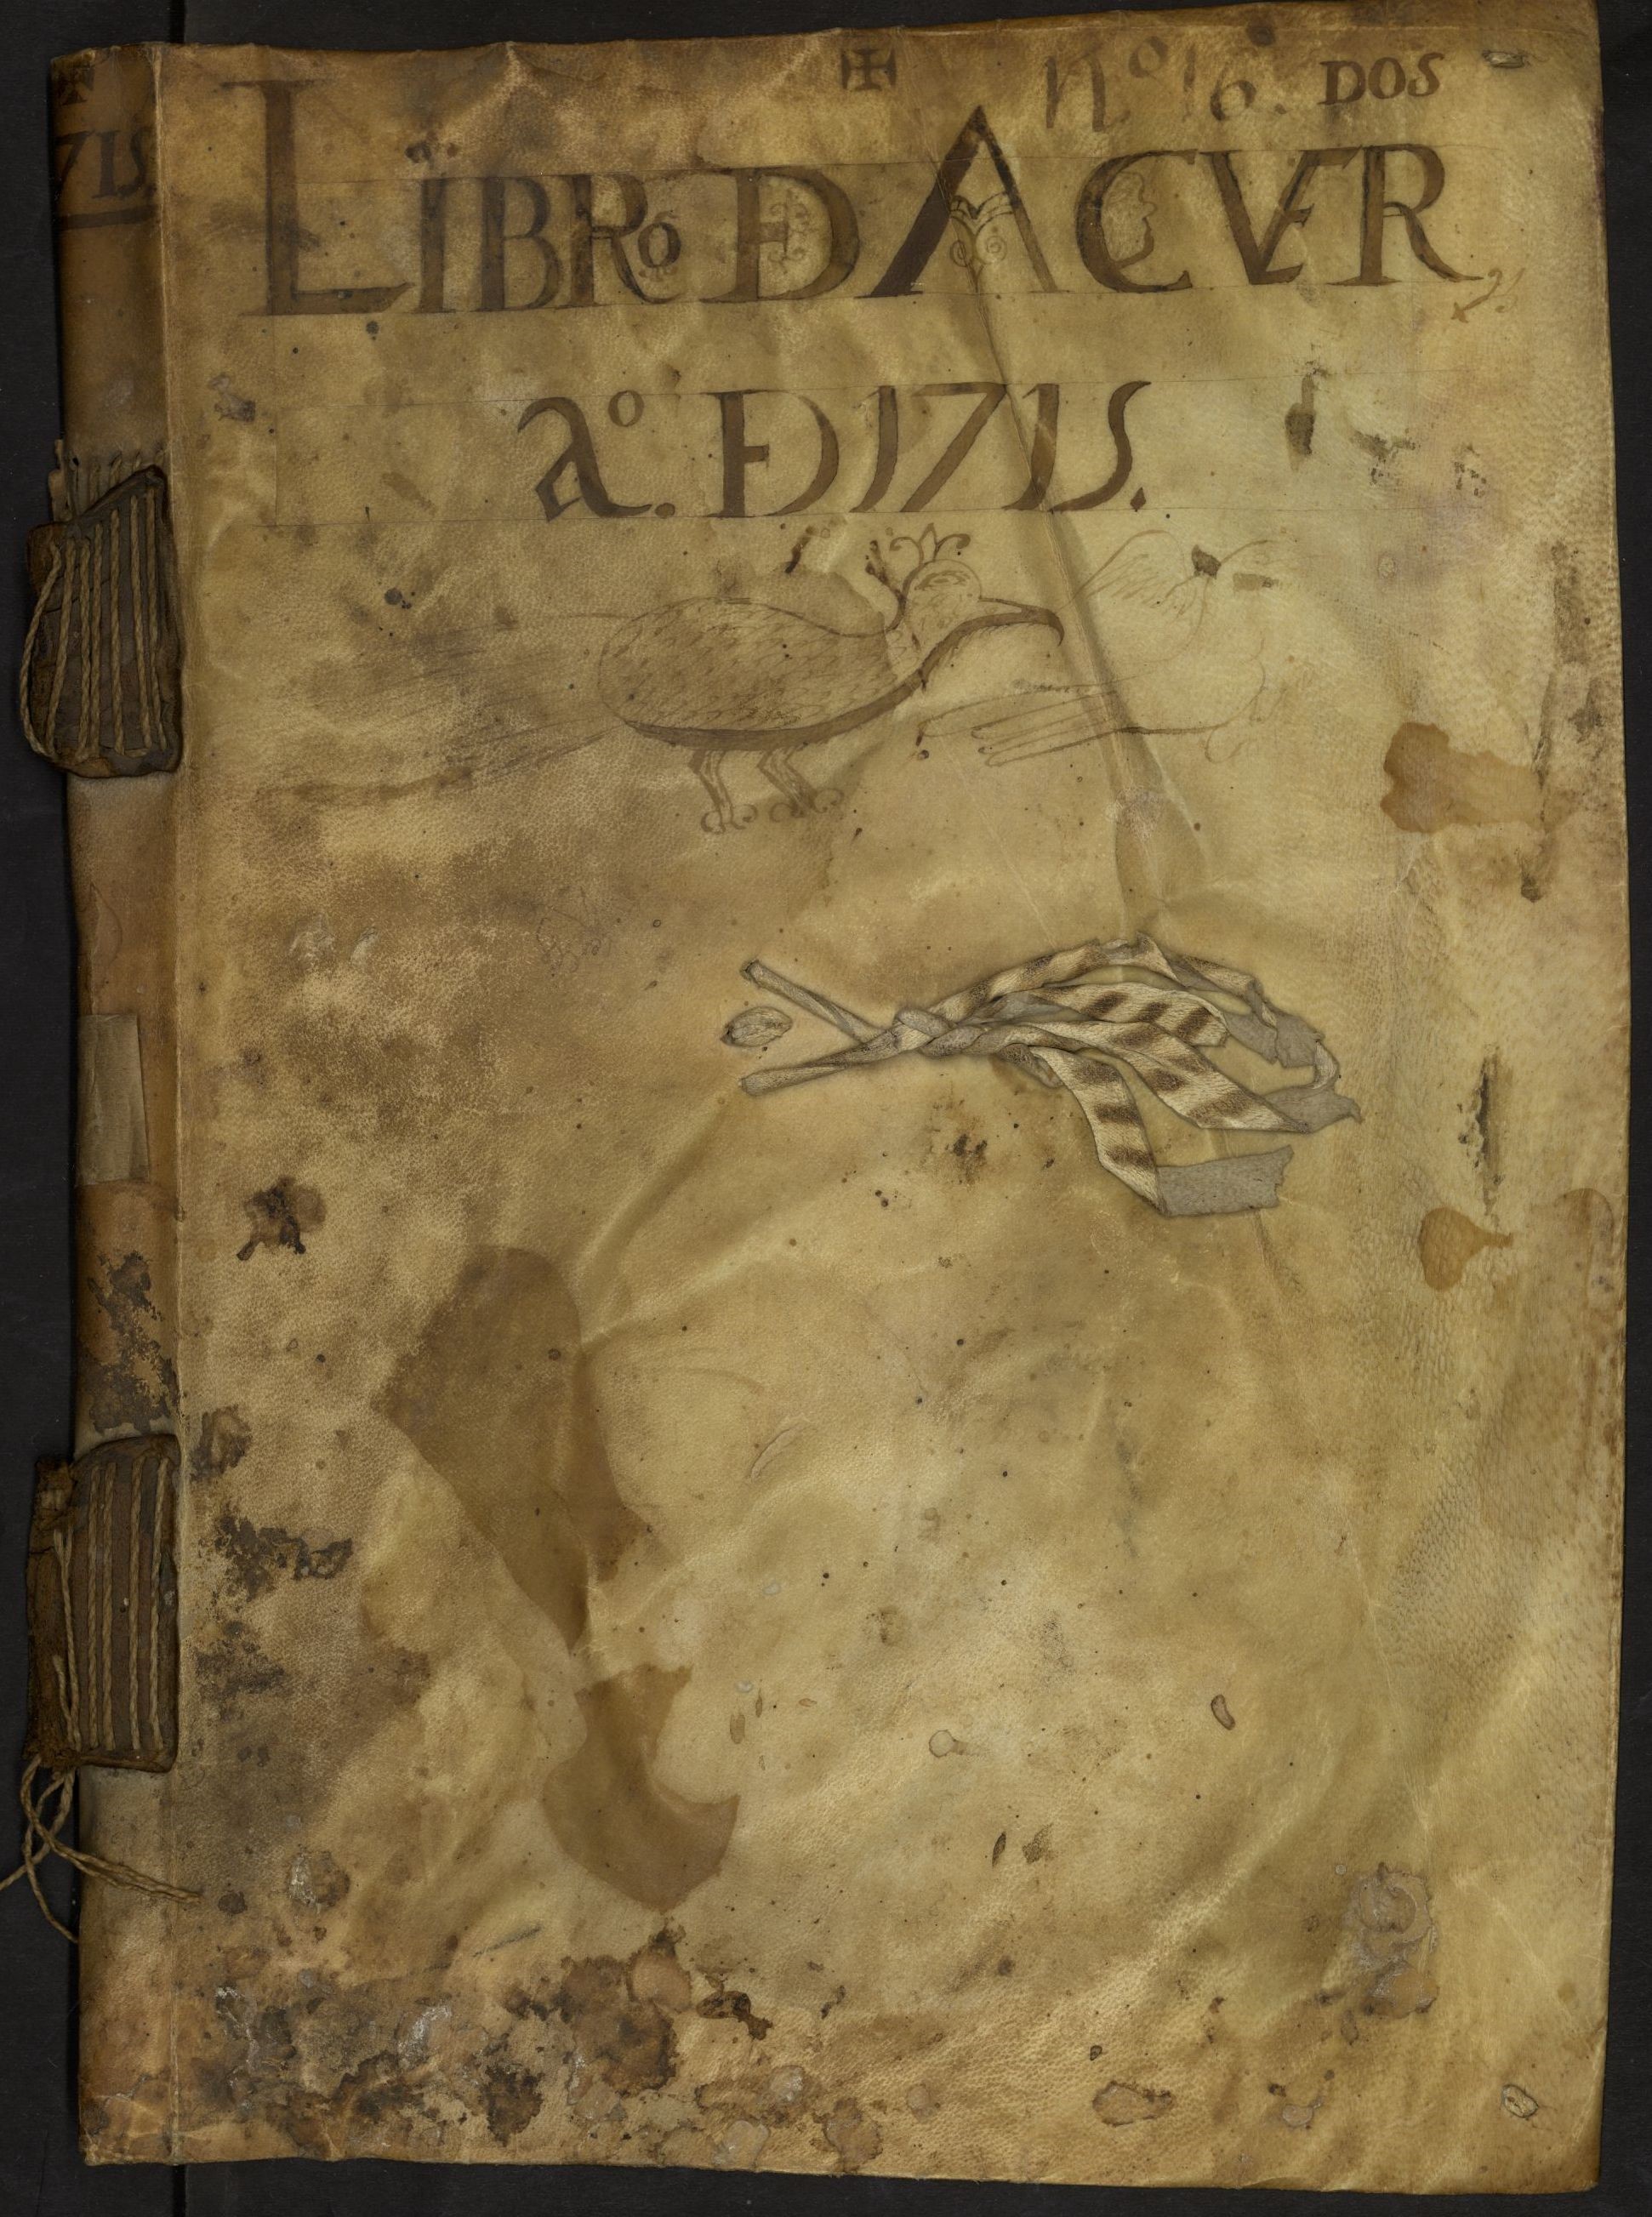 ✠
715
✠ nº 16. DOS
LIBRº DE ACVER
aº. DE 1715.